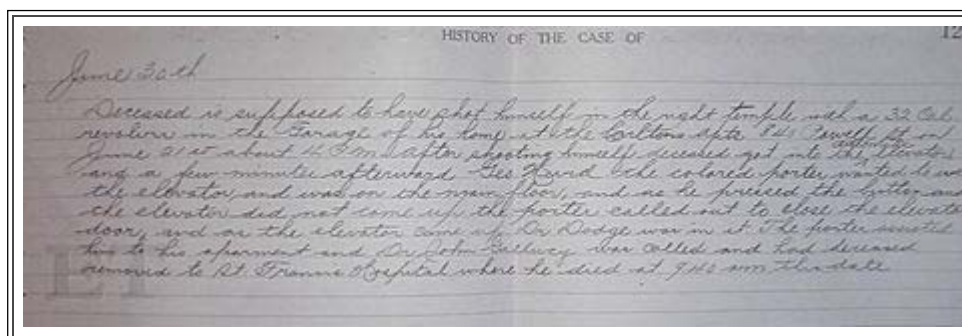 HISTORY OF THE CASE OF
12
June 30th
Deceased is supposed to have shot himself in the right temple with a 32 Cal
revolver in the Garage of his home at the Carltons apts 840 Powell St on
June 21st about 4 P.m. After shooting himself deceased got into the automatic elevator
and a few minutes afterward Geo the colored porter wanted to use
the elevator and was on the main floor, and as he pressed the button and
the elevator did not come up the porter called out to close the elevator
door, and as the elevator came up Dr Dodge was in it. The porter assisted
him to his aparment and Dr John was called and had deceased
removed to St. Francis Hospital where he died at 9 40 am this date